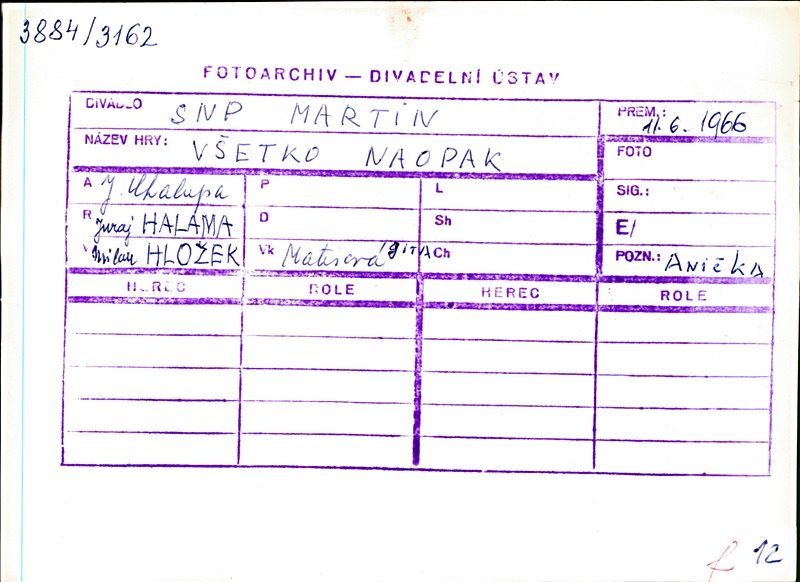 3884/3162
FOTOARCHIV — DIVADELNÍ ÚSTAV
DIVADLO SNP MARTIN PREM.: 11.6. 1966
NÁZEV HRY: VŠETKO NAOPAK FOTO
A J. Chalupa P L SIG.:
R Juraj HALAMA D Sh E/
V Milan HLOŽEK Vk Matisová GITA Ch POZN.: ANIČKA
HEREC ROLE HEREC ROLE
12